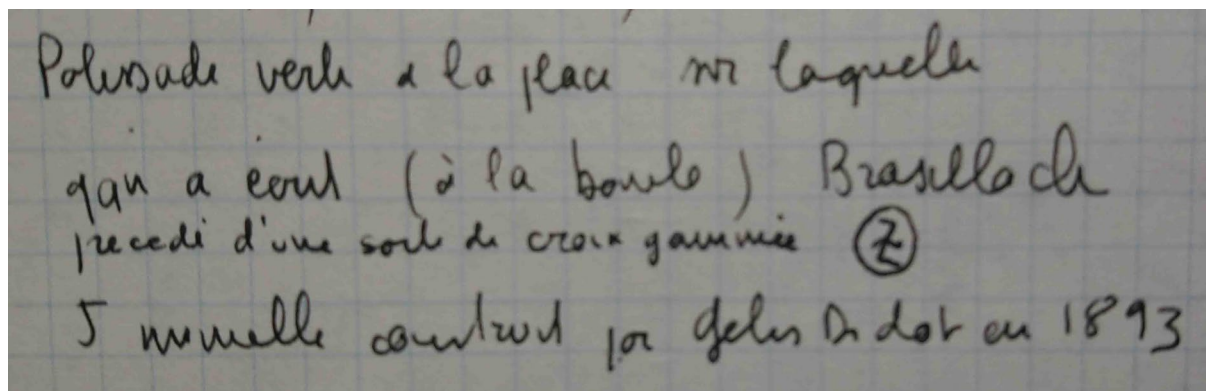 Palissade verte à la place sur laquelle
qqn a écrit (à la bombe) Brasillach
précédé d'une sorte de croix gammée
5 nouvelle construit par Gelis Didot en 1893